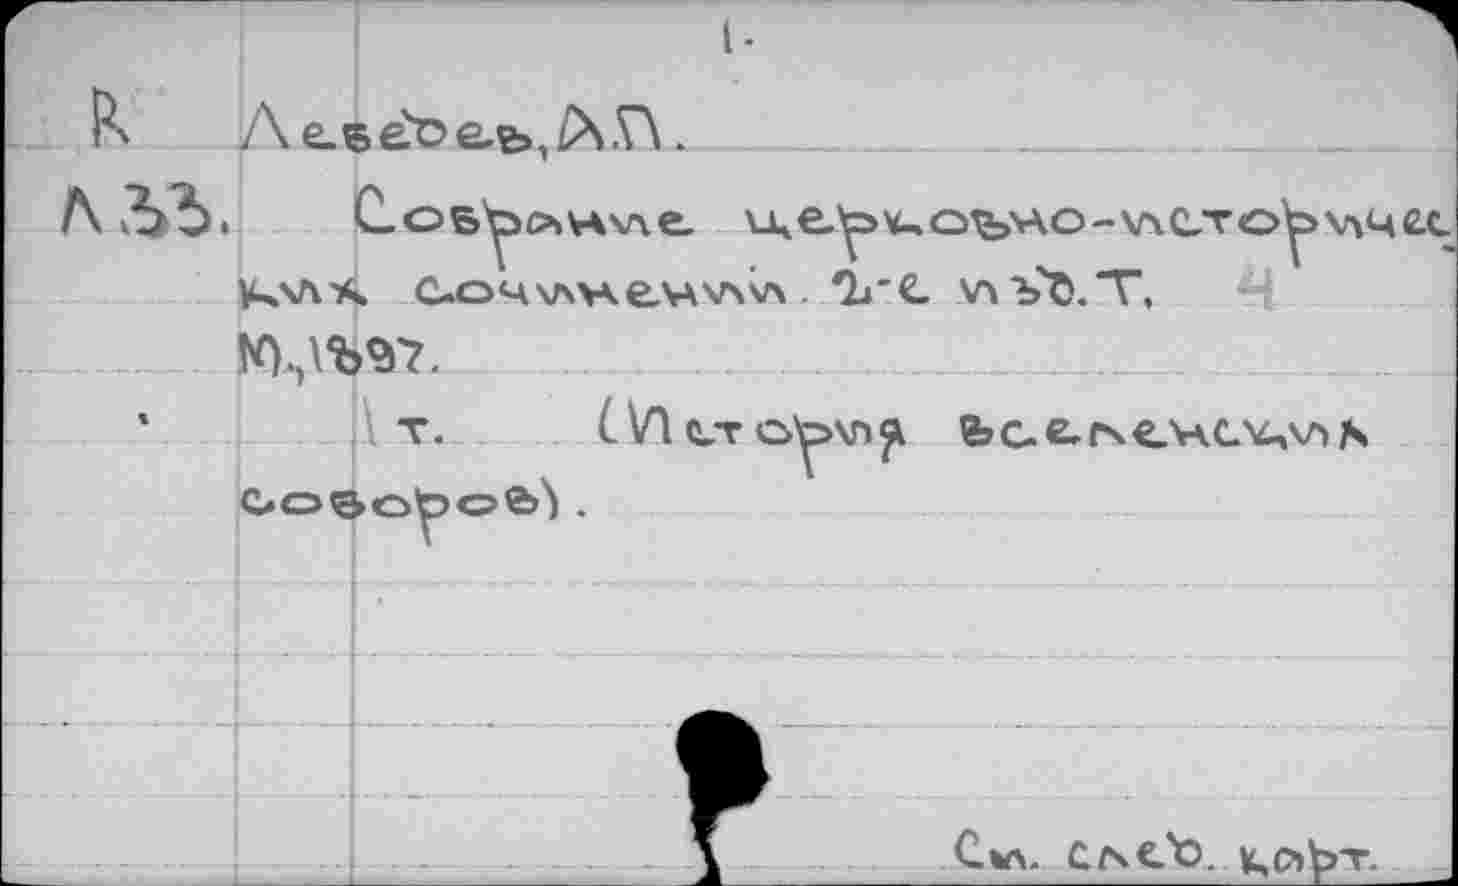 1.
R Лебедев, А.П.
Л 33. Собрание церковно-историчес-
ких сочинений. 2-е изд. Т,
М., 1897.
1 т. (История вселенских
соборов).
См. след. карт.